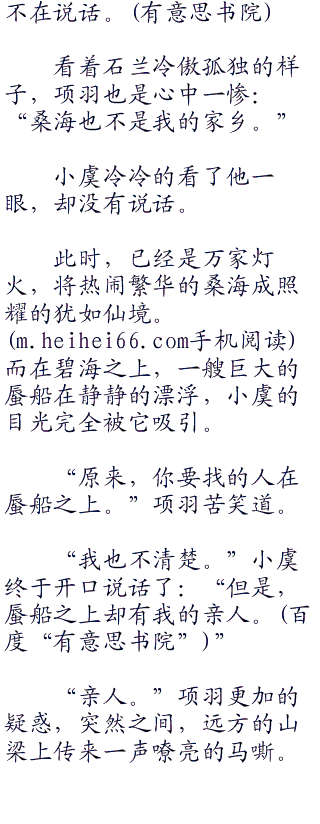 不在说话。(有意思书院)
看着石兰冷傲孤独的样
子，项羽也是心中一惨：
“桑海也不是我的家乡。”
小虞冷冷的看了他一
眼，却没有说话。
此时，已经是万家灯
火，将热闹繁华的桑海成照
耀的犹如仙境。
(m.heihei66.com手机阅读)
而在碧海之上，一艘巨大的
蜃船在静静的漂浮，小虞的
目光完全被它吸引。
“原来，你要找的人在
蜃船之上。”项羽苦笑道。
“我也不清楚。”小虞
终于开口说话了：“但是，
蜃船之上却有我的亲人。(百
度“有意思书院”)”
“亲人。”项羽更加的
疑惑，突然之间，远方的山
梁上传来一声嘹亮的马嘶。